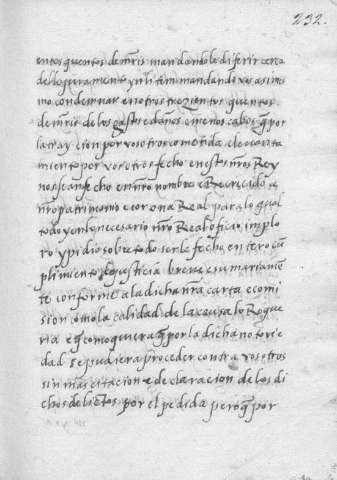 232.
entos quentos de mrs mandandole diferir cerca
del juramento yn litem mandando vos asimis
mo condemnar en otros trezientos quentos
de mrs de los gastos e daños e menos cabos q por
la traycion por vosotros cometida e levanta
miento por vosotros fecho en estos nros Rey
nos se an fecho en nro nombre e Recrescido a
nro patrimonio e corona Real para lo qual
todo y en lo necesario nro Real oficio implo
ro y pidio sobre todo serle fecho entero cu
plimiento de justicia breve e sumariamen
te conforme a la dicha nra carta e comi
sion como la calidad de la cavsa lo Reque
ria e q como quiera q por la dicha notorie
dad se pudiera proceder contra vosotros
sin mas citacion e declaracion de los di
chos delictos por el pedida pero q por